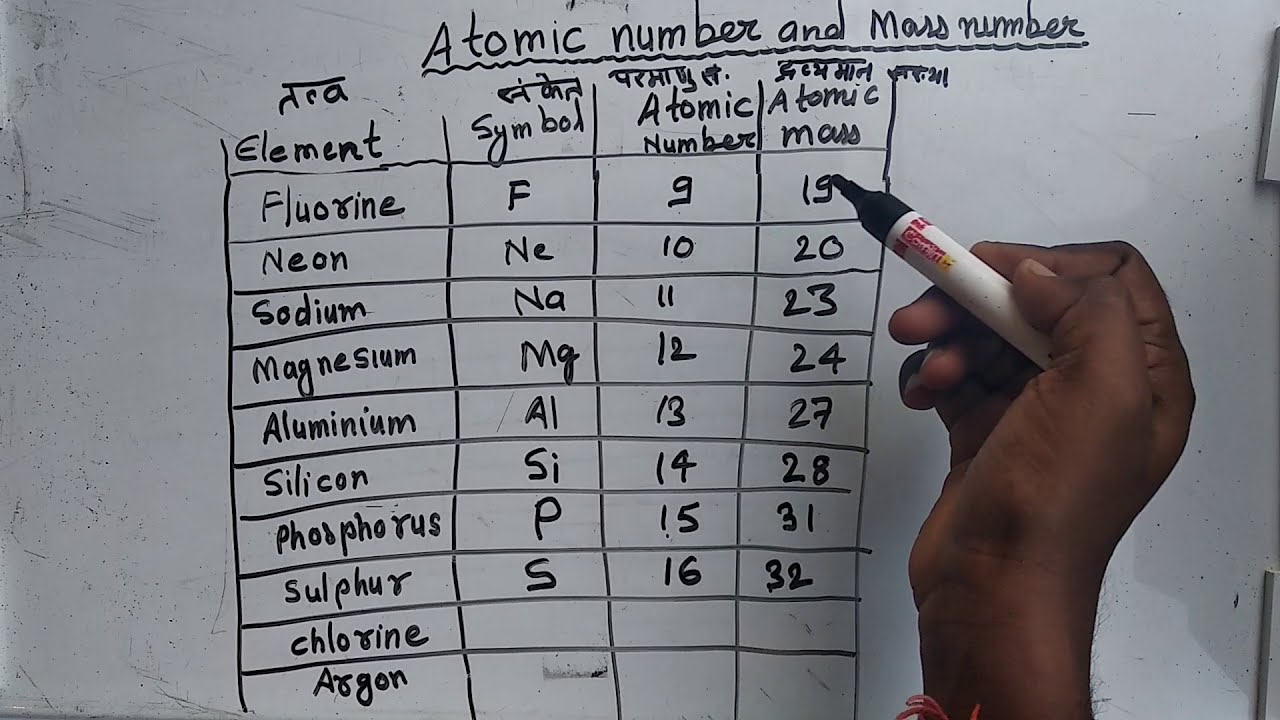 Atomic number and Mass number
तत्व संकेत परमाणु सं. द्रव्यमान संख्या
Element Symbol Atomic Number Atomic mass
Fluorine F 9 19
Neon Ne 10 20
Sodium Na 11 23
Magnesium Mg 12 24
Aluminium Al 13 27
Silicon Si 14 28
Phosphorus P 15 31
Sulphur S 16 32
chlorine
Argon